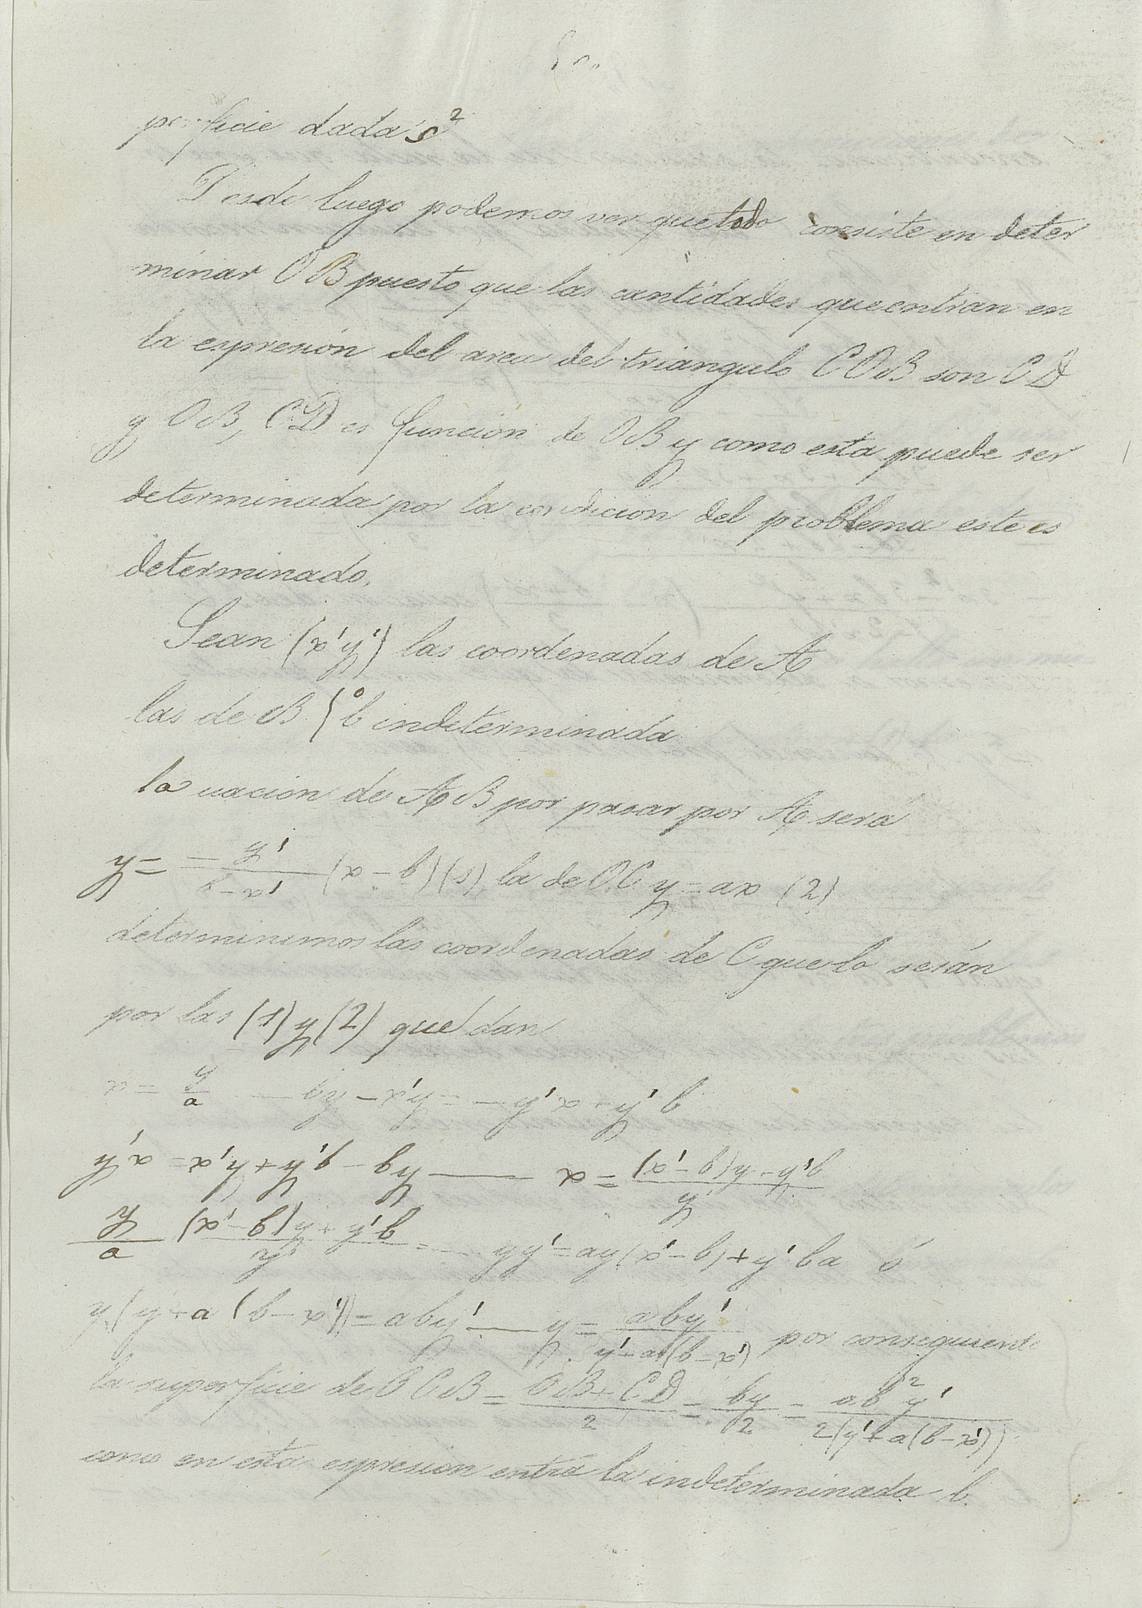 perficie dada s²
Desde luego podemos ver que todo consiste en deter
minar OB puesto que las cantidades que entran en
la expresión del area del triangulo COB son CD
y OB, CD es función de OB y como esta puede ser
determinada por la condicion del problema este es
determinado.
Sean (x'y') las coordenadas de A
las de B { o b indeterminada
la uación de AB por pasar por A será
y = - y'/(b-x') (x-b) (1) la de OC y = ax (2)
determinemos las coordenadas de C que lo serán
por las (1) y (2) que dan
x = y/a
by - b'y' + y'x = x'y — x = (b'y' - y(b-x'))/y'
y/a = — yy' = ay(x'-b) + y'ba ó
y(y'+a(b-x')) = aby' — y = aby'/(y'+a(b-x')) por consiguiente
la superficie de OCB = OB+CD/2 = by/2 = ab²y'/2(y'+a(b-x'))
como en esta expresion entra la indeterminada b.